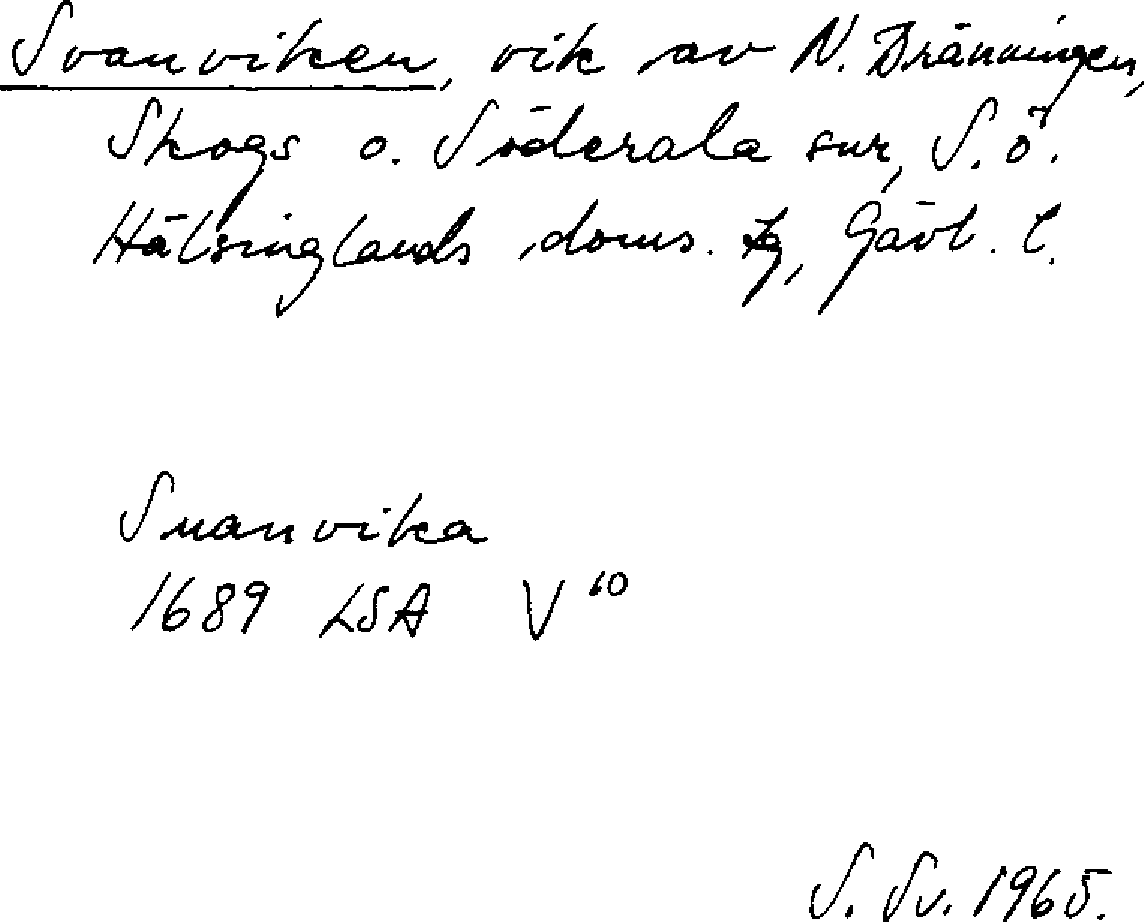 Svanviken, vik av N. Dränningen,
Skogs o. Söderala snr, S. ö.
Hälsinglands doms. tg, Gävl. l.
Suanvika
1689 LSA V 10
S. Sv. 1965.